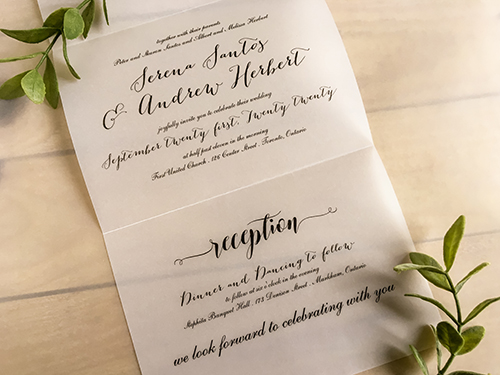 together with their parents
Peter and Susan Santos and Albert and Melissa Herbert
Serena Santos
& Andrew Herbert
joyfully invite you to celebrate their wedding
September twenty first, Twenty twenty
at half past eleven in the morning
First United Church . 126 Center Street . Toronto, Ontario
reception
Dinner and Dancing to follow
to follow at six o'clock in the evening
Banquet Hall . 175 Denison Street . Markham, Ontario
we look forward to celebrating with you